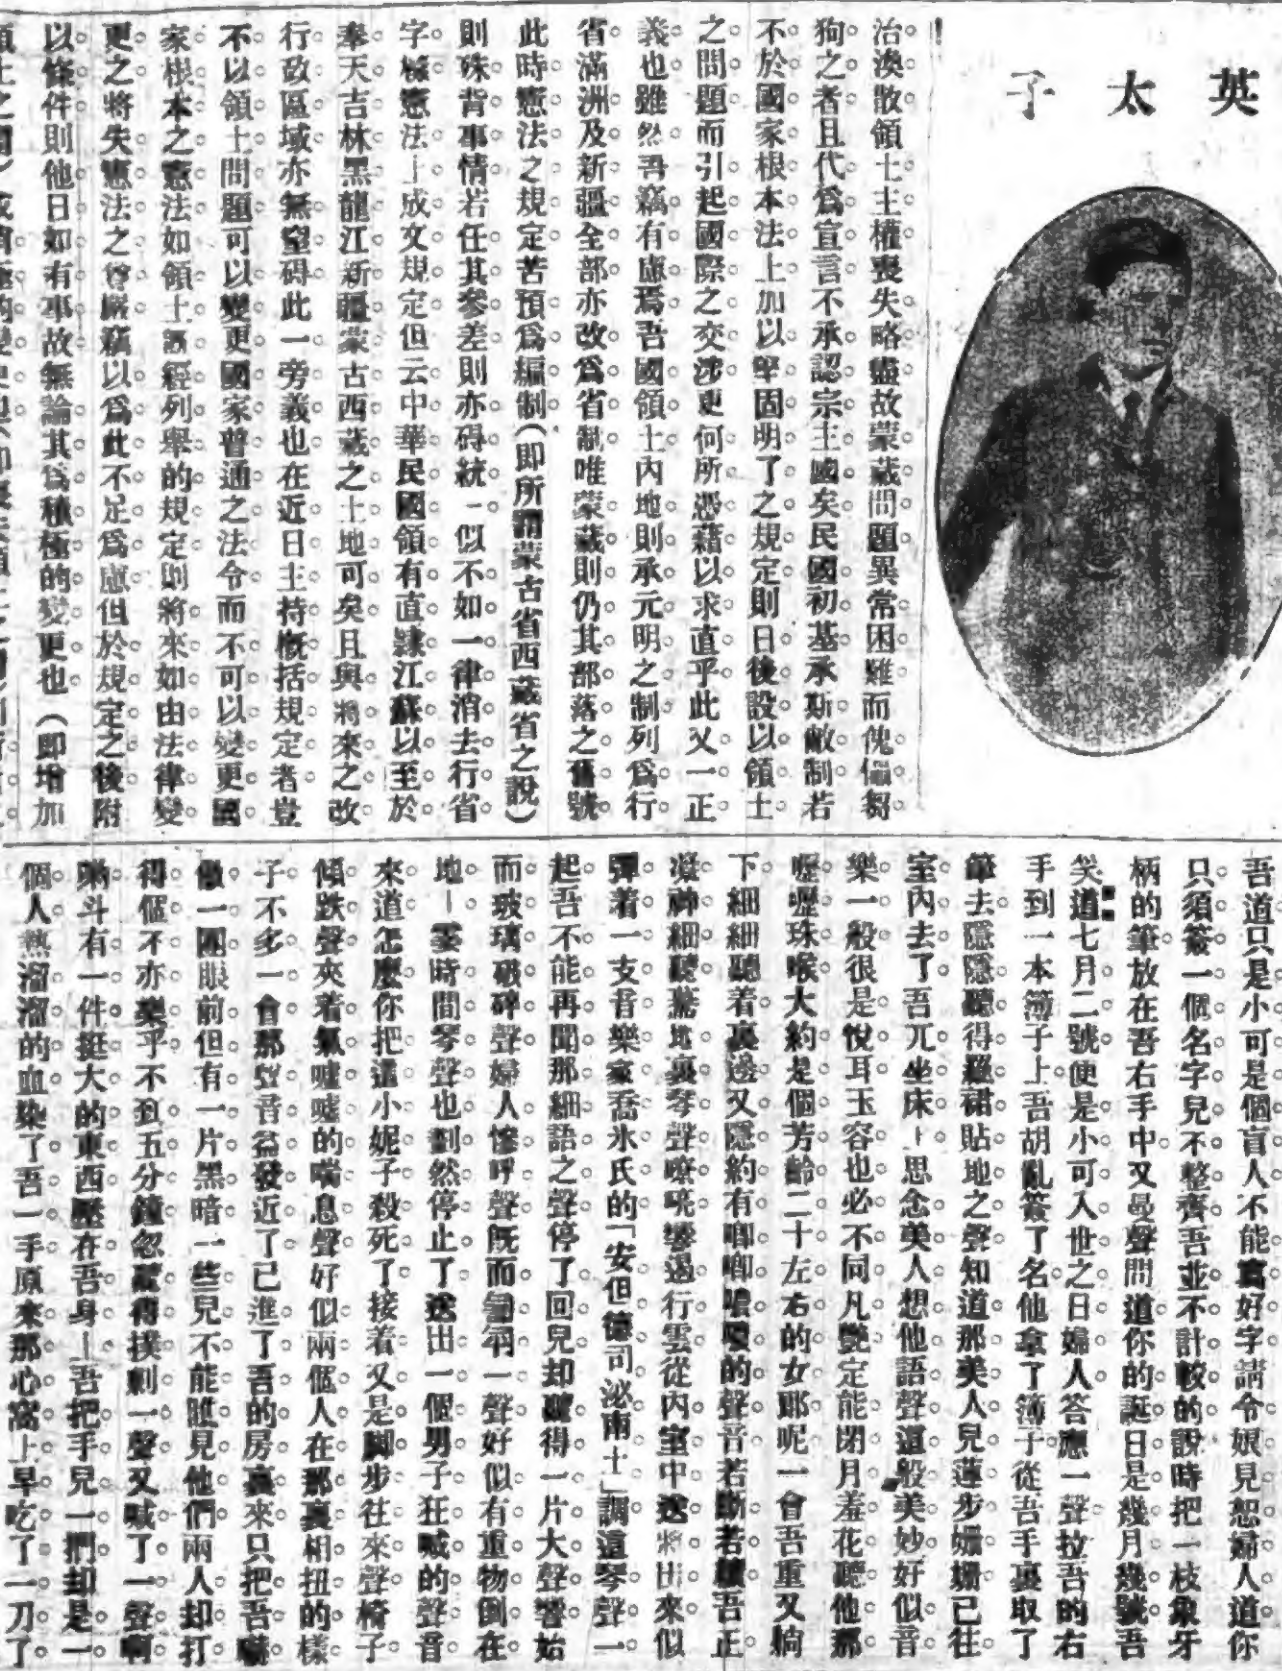 英太子
治渙散領土主權喪失略盡故蒙藏問題異常困難而傀儡芻
狗之者且代爲宣言不承認宗主國矣民國初基承斯敝制若
不於國家根本法上加以堅固明了之規定則日後設以領土
之問題而引起國際之交涉更何所憑藉以求直乎此又一正
義也雖然吾竊有慮焉吾國領土內地則承元明之制列爲行
省滿洲及新疆全部亦改爲省制唯蒙藏則仍其部落之舊號
此時憲法之規定苦預爲編制(即所謂蒙古省西藏省之說)
則殊背事情若任其參差則亦碍統一似不如一律消去行省
字樣憲法上成文規定但云中華民國領有直隸江蘇以至於
奉天吉林黑龍江新疆蒙古西藏之土地可矣且與將來之改
行政區域亦無窒碍此一旁義也在近日主持概括規定者豈
不以領土問題可以變更國家普通之法令而不可以變更國
家根本之憲法如領土既經列舉的規定則將來如由法律變
更之將失憲法之尊嚴竊以爲此不足爲慮但於規定之後附
以條件則他日如有事故無論其爲積極的變更也(即增加
吾道只是小可是個盲人不能寫好字請令娘見恕婦人道你
只須簽一個名字兒不整齊吾並不計較的說時把一枝象牙
柄的筆放在吾右手中又曼聲問道你的誕日是幾月幾號吾
笑道七月二號便是小可入世之日婦人答應一聲拉吾的右
手到一本簿子上吾胡亂簽了名他拿了簿子從吾手裏取了
筆去隱隱聽得羅裙貼地之聲知道那美人兒蓮步姍姍已往
室內去了吾兀坐床上思念美人想他語聲這般美妙好似音
樂一般很是悅耳玉容也必不同凡艷定能閉月羞花聽他那
嚦嚦珠喉大約是個芳齡二十左右的女郎呢一會吾重又躺
下細細聽着裏邊又隱約有唧唧噥噥的聲音若斷若續吾正
凝神細聽驀地裏琴聲嘹喨響遏行雲從內室中送將出來似
彈着一支音樂家喬氷氏的「安但德司泌南士」調這琴聲一
起吾不能再聞那細語之聲停了回兒却聽得一片大聲響始
而玻璃破碎聲婦人慘呼聲既而𥗬𥕛一聲好似有重物倒在
地上霎時間琴聲也劃然停止了送出一個男子狂喊的聲音
來道怎麼你把這小妮子殺死了接着又是脚步往來聲椅子
傾跌聲夾着氣噓噓的喘息聲好似兩個人在那裏相扭的樣
子不多一會那聲音益發近了已進了吾的房裏來只把吾嚇
做一團眼前但有一片黑暗一些兒不能瞧見他們兩人却打
得個不亦樂乎不到五分鐘忽聽得撲剌一聲又喊了一聲啊
唷斗有一件挺大的東西壓在吾身上吾把手兒一捫却是一
個人熱溜溜的血染了吾一手原來那心窩上早吃了一刀了